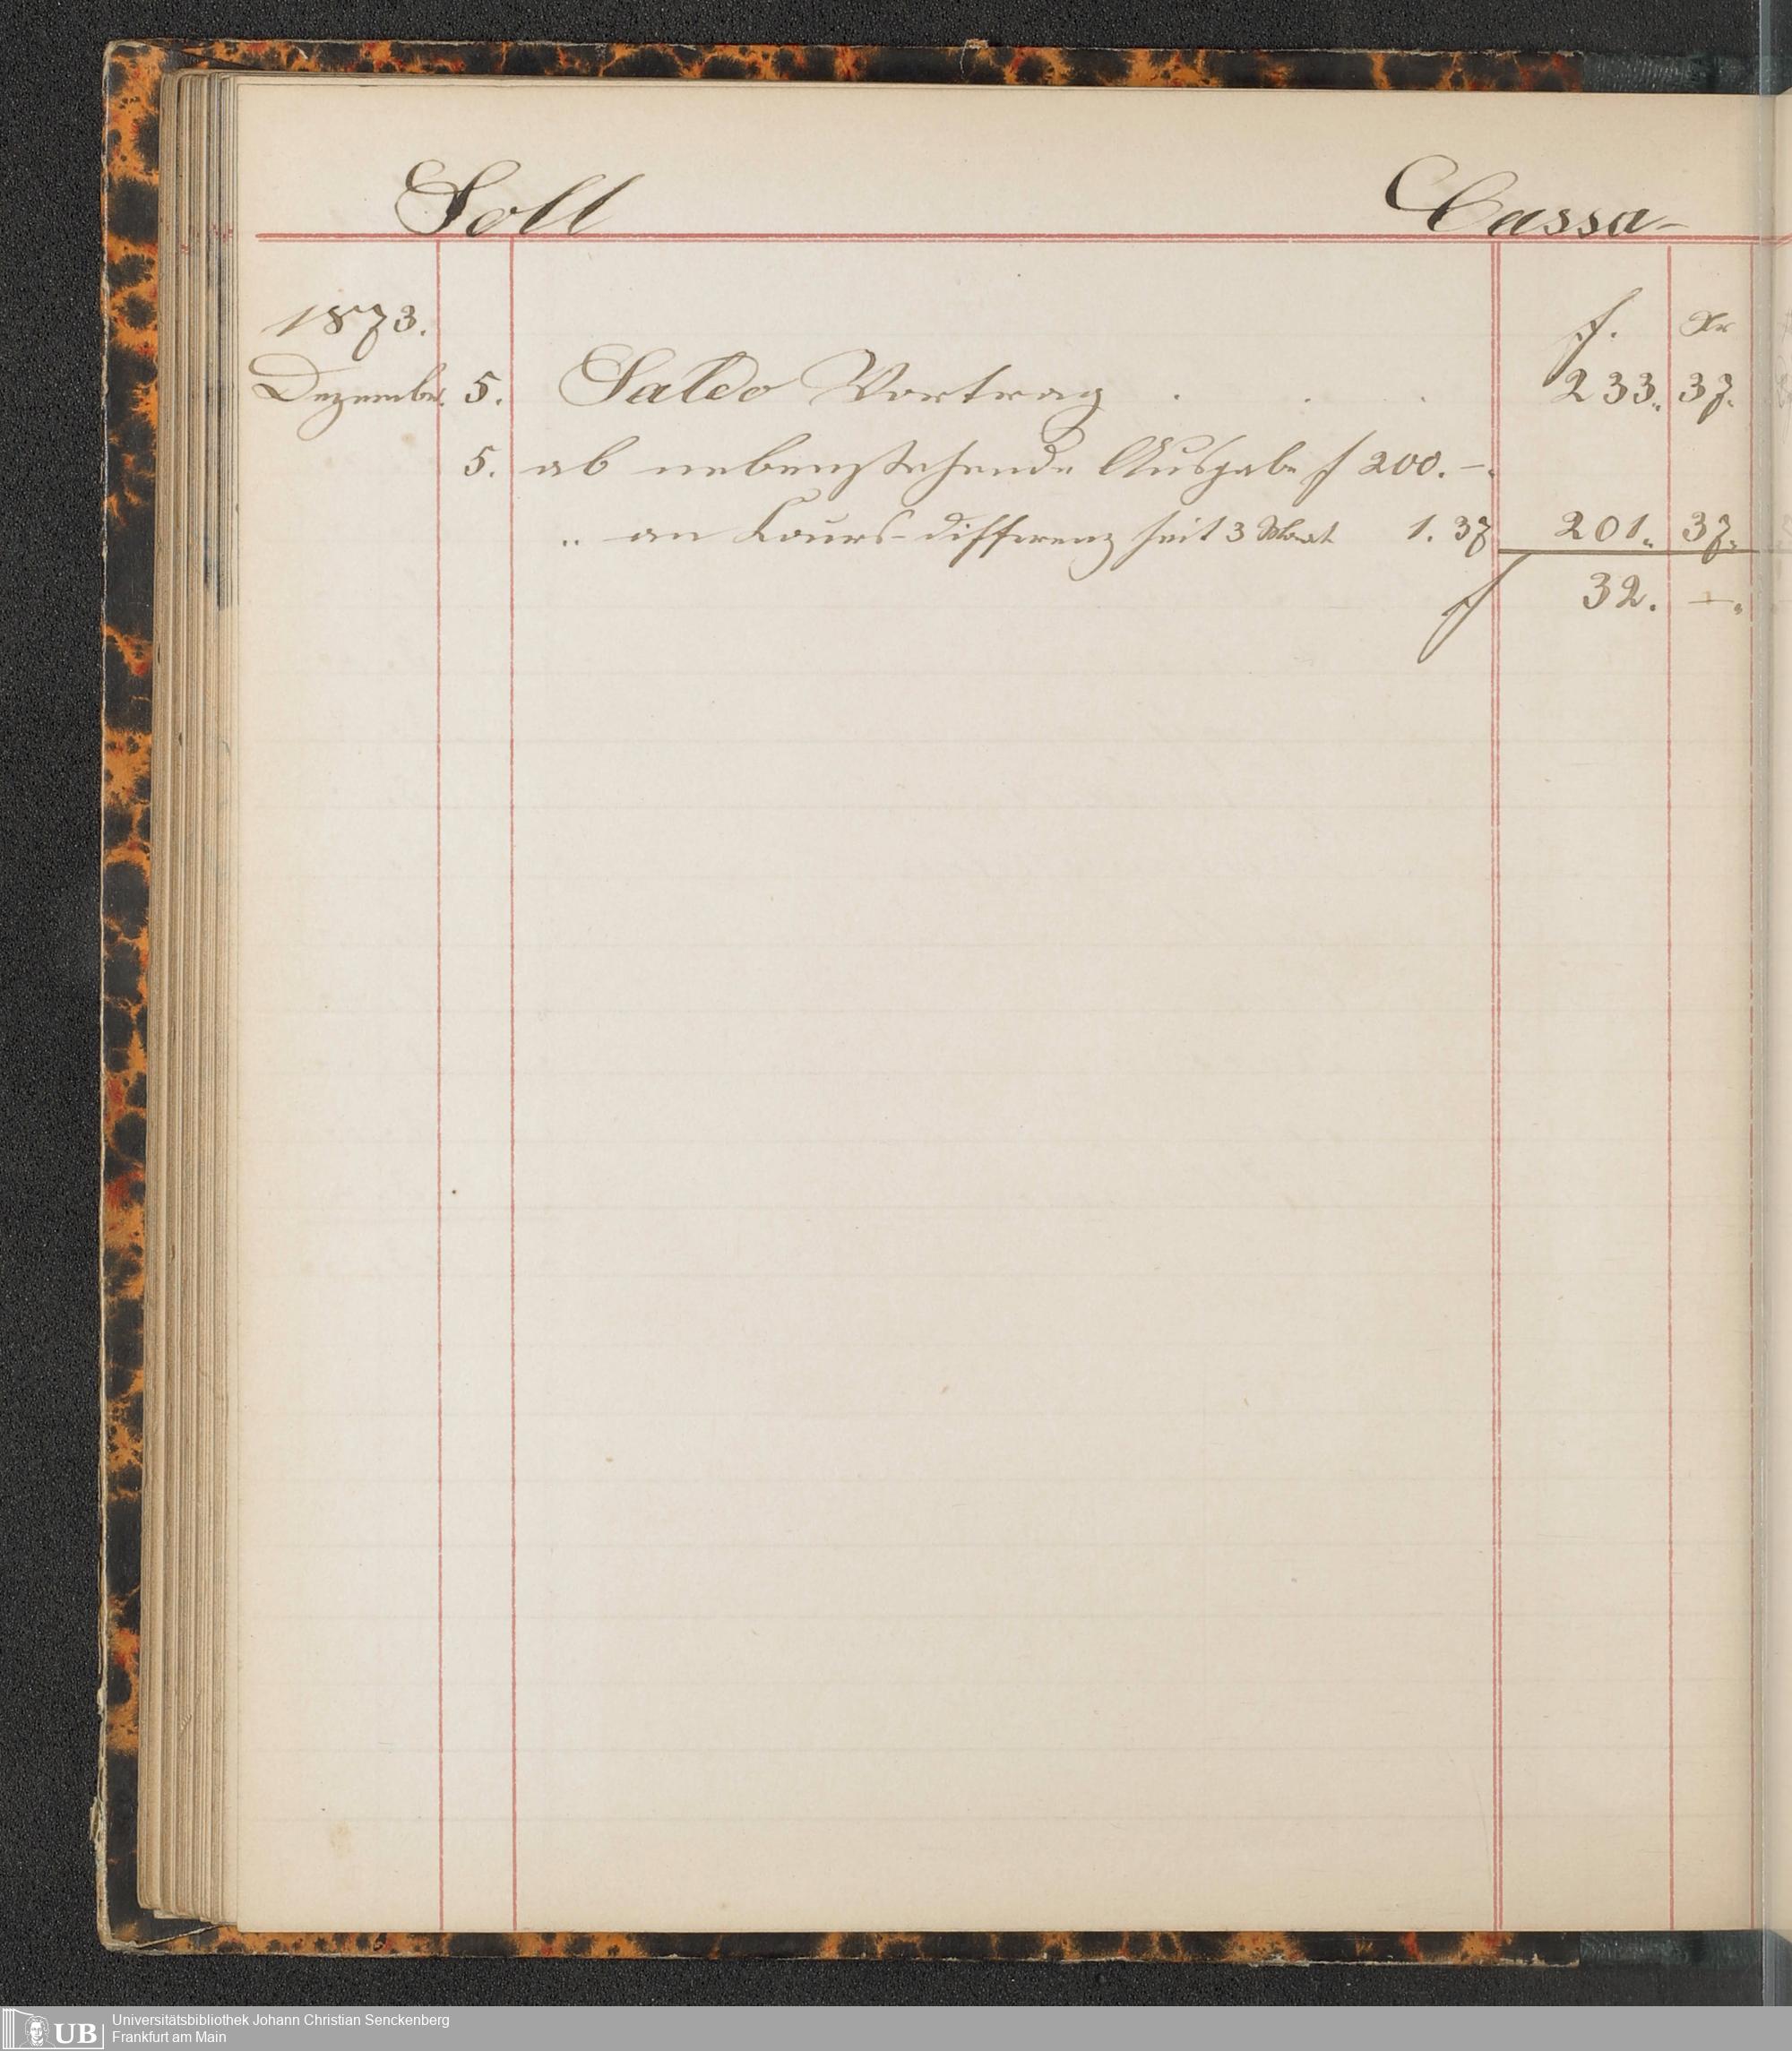 Soll Cassa-
1873. f. Xr
Dezember. 5. Saldo Vortrag . . . 233. 37.
5. ab nebenstehende Ausgabe f 200. –.
„ an Kours-differenz seit 3 Monat 1. 37 201. 37.
f 32. –.
UB Universitätsbibliothek Johann Christian Senckenberg
Frankfurt am Main